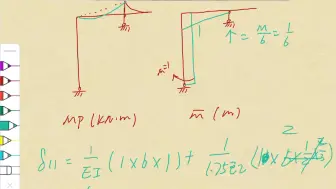 1
↑ = M/6 = 1/6
m=1
MP (KN·m)
m̄ (m)
2
δ11 = 1/EI (1×6×1) + 1/1.75EI